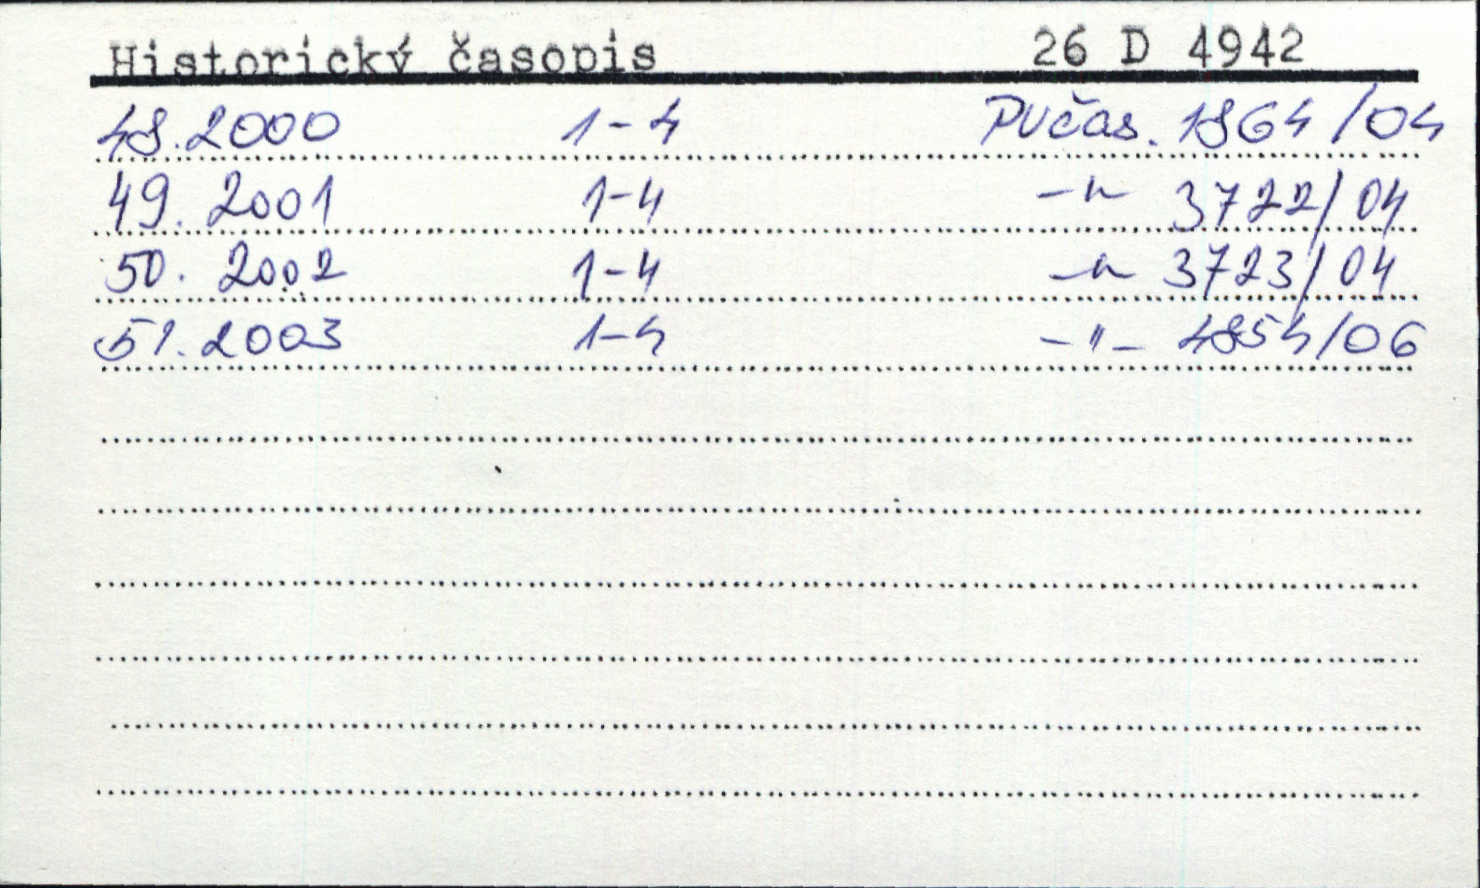 Historický časopis 26 D 4942
48. 2000 1-4 PVčas. 1864/04
49. 2001 1-4 -"- 3722/04
50. 2002 1-4 -"- 3723/04
51. 2003 1-4 -"- 4854/06